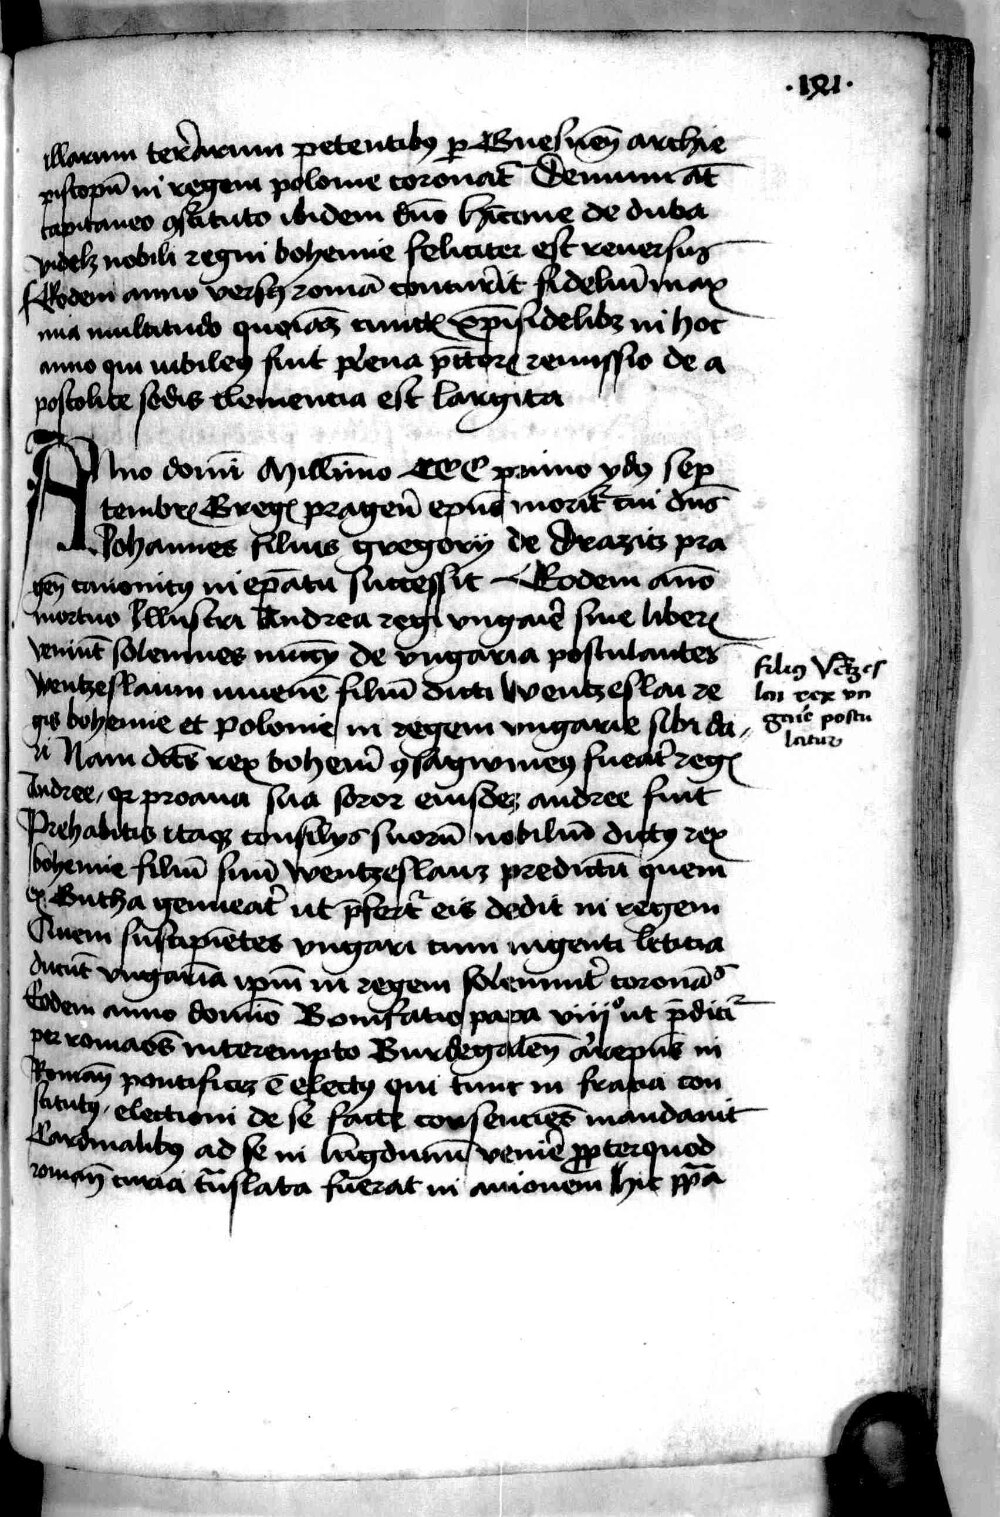 ·191·
illarum terrarum petentibꝯ ꝑ Gnesneñ archie
piscopū in regem polonie coronat̄ Demum at̄
capitaneo ꝯstituto ibidem dn̄o hincone de duba
videlꝫ nobili regni bohemie feliciter est reuersus
Eodem anno versꝯ romā concurrit fideliū max
ima multitudo qm̄ cunctꝭ xp̄ifidelibꝫ in hoc
anno qui iubileꝯ fuit plena pc̄torꝝ remissio de a
postolice sedis clemencia est largita
Anno domī Millīmo CCC primo ydꝯ sep
tembrꝭ Gregꝭ prageñ ep̄us morit̄ cui dn̄s
Johannes filius gregorij de Drazitz pra
geñ canonicꝯ in ep̄atu successit Eodem an̄o
mortuo Illustri Andrea rege vngarie sine liberꝭ
veniūt solennes nuncij de vngaria postulantes
Wentzeslaum iuuenē filiū dicti Wentzeslai re
gis bohemie et Polonie in regem vngarie sibi da
ri Nam dc̄us rex bohemie ꝯsagwineꝯ fuerat regꝭ
Andree, qꝛ proaua sua soror eiusdeꝫ andree fuit
Prehabitis itaqꝫ consilijs suorū nobiliū dictꝯ rex
bohemie filiū suū Wentzeslauꝫ predictū quem
ex Gutha genuerat ut p̄fert̄ eis dedit in regem
Quem suscipiētes vngari cum ingenti leticia
ducūt vngariā ip̄m in regem solemnit̄ coronādo
Eodem anno domno Bonifatio papa viijo ut p̄dicit̄
per romaōs interempto Burdegaleñ arc̄repūs in
Romañ pontificeꝫ ē electꝯ qui tunc in francia con
stitutꝯ, electioni de se facte consenciēs mandauit
Cardinalibꝯ ad se in lugdunū venire ꝓpterquod
romañ curia trāslata fuerat in auionem hic pp̄a
filiꝯ Vēczes
lai rex vn
garie postu
latur